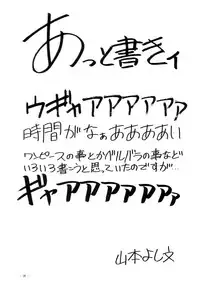 あっと書きィ
ウギャアアアアアァ
時間がなぁあああい
ワンピースの事とかベルバラの事など
いろいろ書こうと思っていたのですが…
ギャアアアアアァァ
山本よし文